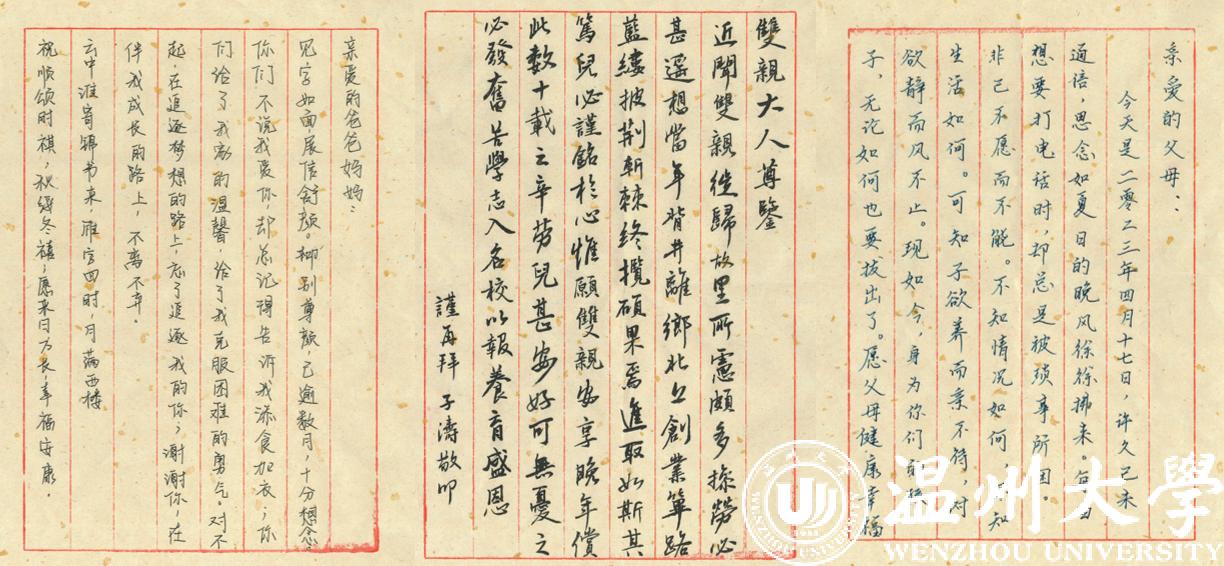 亲爱的父母:
今天是二零二三年四月十七日,许久已未
通信,思念如夏日的晚风徐徐拂来。每当
想要打电话时,却总是被琐事所困。
非己不愿而不能。不知情况如何,不知
生活如何。可知子欲养而亲不待,对
欲静而风不止。现如今,身为你们的孩
子,无论如何也要拔出了。愿父母健康幸福
雙親大人尊鑒
近聞雙親徙歸故里所慮頗多操勞必
甚遥想當年背井離鄉北上創業篳路
藍縷披荆斬棘終攬碩果焉進取如斯其
篤兒必謹銘於心惟願雙親安享晚年償
此數十載之辛勞兒甚安好可無憂之
必發奮苦學志入名校以報養育盛恩
謹再拜 子濤敬叩
亲爱的爸爸妈妈:
见字如面,展信舒颜。柳别尊颜,已逾数月,十分想念。
你们不说我爱你,却总记得告诉我添食加衣;你
们给了我家的温馨,给了我克服困难的勇气。对不
起,在追逐梦想的路上,忘了追逐我的你;谢谢你,在
伴我成长的路上,不离不弃。
云中谁寄锦书来,雁字回时,月满西楼
祝顺颂时祺,秋绥冬禧,愿来日方长,幸福安康。
温州大学
WENZHOU UNIVERSITY